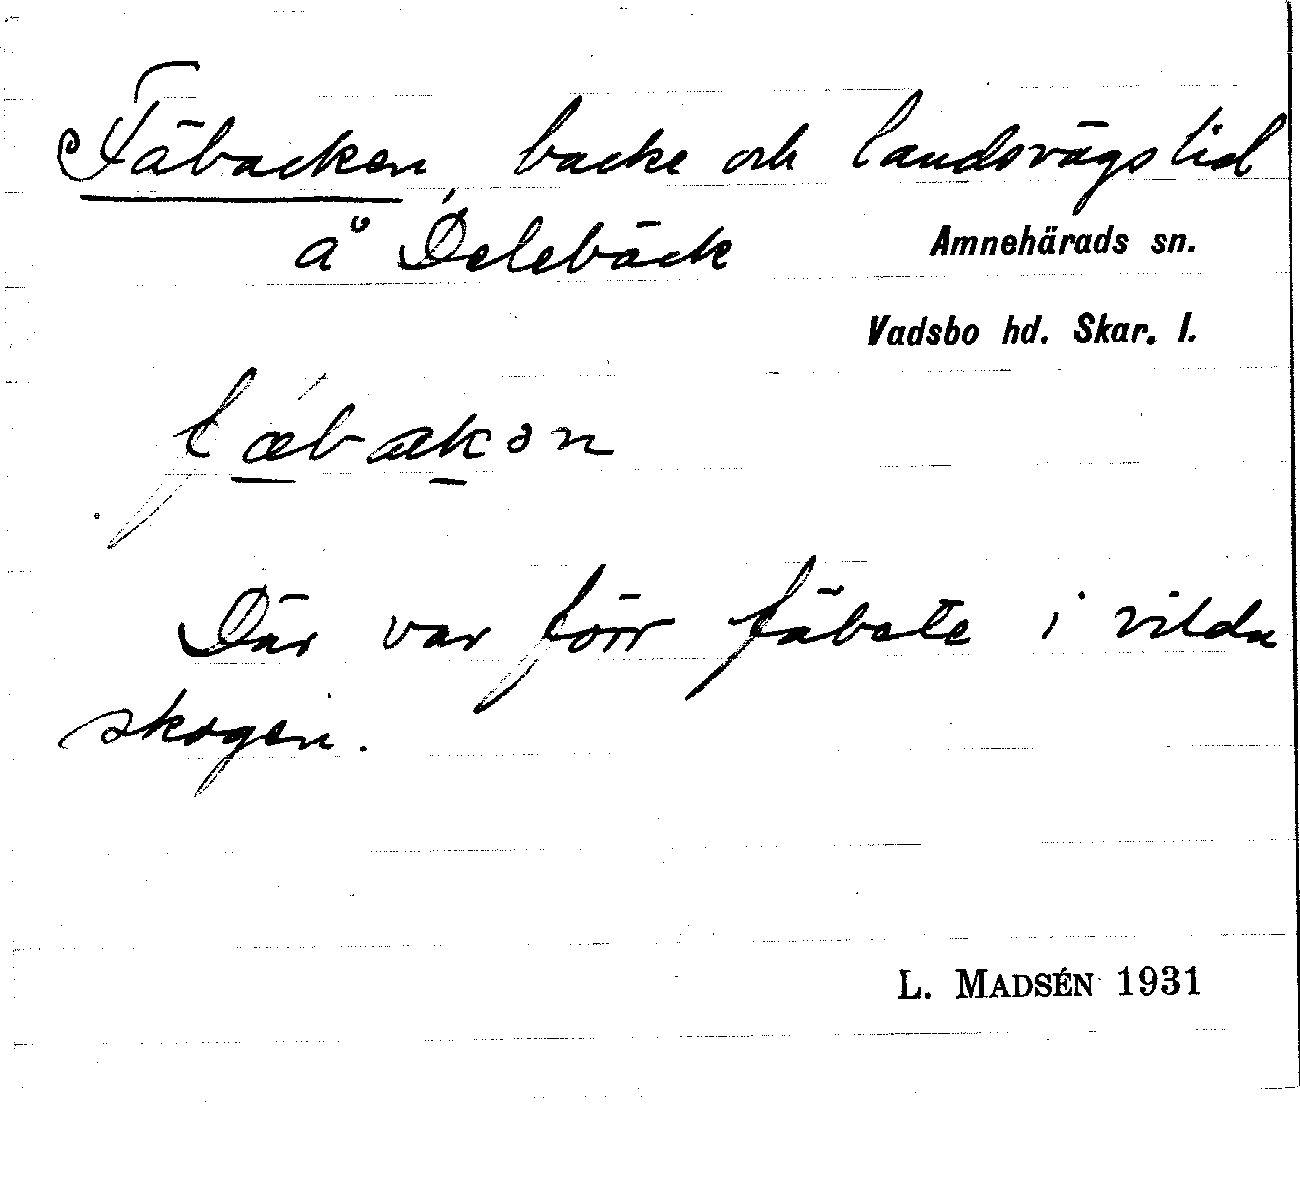 Fäbacken, backe och landsvägslid
å Delebäck
Amnehärads sn.
Vadsbo hd. Skar. l.
fæ´bakən
Där var förr fäbete i vilda
skogen.
L. MADSÉN 1931